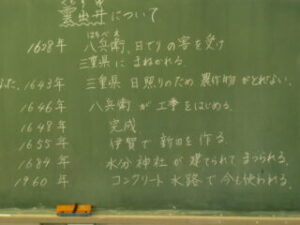 雲出井について
1628年 八兵衛、日でりの害を受け
三重県にまねかれる。
1643年 三重県 日照りのため 農作物がとれない。
1646年 八兵衛が工事をはじめる。
1648年 完成
1655年 伊賀で新田を作る。
1684年 水分神社が建てられてまつられる。
1960年 コンクリート水路で今も使われる。